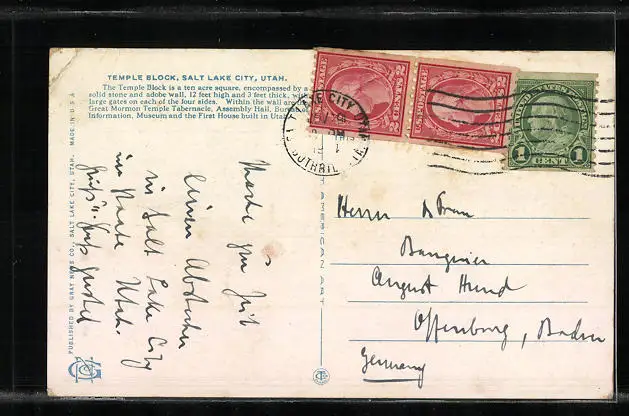 TEMPLE BLOCK, SALT LAKE CITY, UTAH.
The Temple Block is a ten acre square, encompassed by a
solid stone and adobe wall, 12 feet high and 3 feet thick, with
large gates on each of the four sides. Within the wall are the
Great Mormon Temple Tabernacle, Assembly Hall, Bureau of
Information, Museum and the First House built in Utah
PUBLISHED BY GRAY NEWS CO., SALT LAKE CITY, UTAH. MADE IN U S A
Mache zur Zeit
einen Abstecher
in Salt Lake City
im Staate Utah.
AMERICAN ART
U.S. POSTAGE
2 CENTS 2
U.S. POSTAGE
2 CENTS 2
1 CENT 1
LAKE CITY
Herrn &
Bangmier
August Hund
Offenburg, Baden
Germany